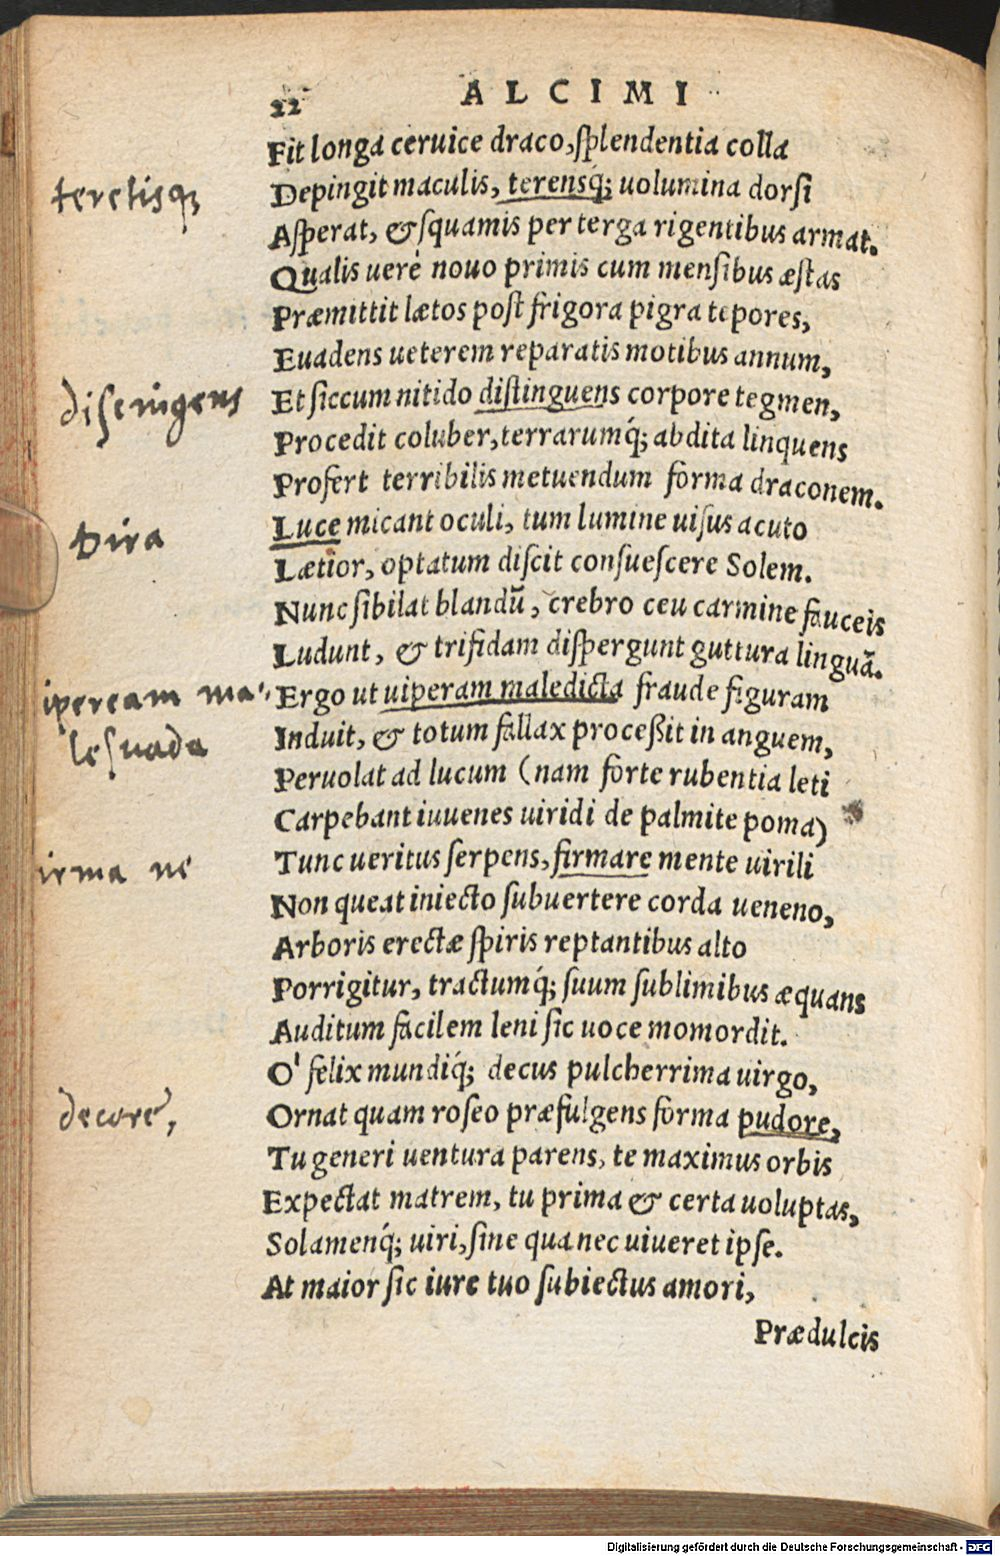 22 ALCIMI
Fit longa ceruice draco, splendentia colla
teretisq́;
Depingit maculis, terensq́; uolumina dorsi
Asperat, & squamis per terga rigentibus armat.
Qualis uere nouo primis cum mensibus æstas
Præmittit lætos post frigora pigra tepores,
Euadens ueterem reparatis motibus annum,
Et siccum nitido distinguens corpore tegmen,
Procedit coluber, terrarumq́; abdita linquens
Profert terribilis metuendum forma draconem.
Dira
Luce micant oculi, tum lumine uisus acuto
Lætior, optatum discit consuescere Solem.
Nunc sibilat blandũ, crebro ceu carmine fauceis
Ludunt, & trifidam dispergunt guttura linguã.
ipeream ma-
Ergo ut uiperam maledicta fraude figuram
lesuada
Induit, & totum fallax proceßit in anguem,
Peruolat ad lucum (nam forte rubentia leti
Carpebant iuuenes uiridi de palmite poma)
irma ne
Tunc ueritus serpens, firmare mente uirili
Non queat iniecto subuertere corda ueneno,
Arboris erectæ spiris reptantibus alto
Porrigitur, tractumq́; suum sublimibus æquans
Auditum facilem leni sic uoce momordit.
O' felix mundiq́; decus pulcherrima uirgo,
decore,
Ornat quam roseo præfulgens forma pudore,
Tu generi uentura parens, te maximus orbis
Expectat matrem, tu prima & certa uoluptas,
Solamenq́; uiri, sine qua nec uiueret ipse.
At maior sic iure tuo subiectus amori,
Prædulcis
Digitalisierung gefördert durch die Deutsche Forschungsgemeinschaft - DFG